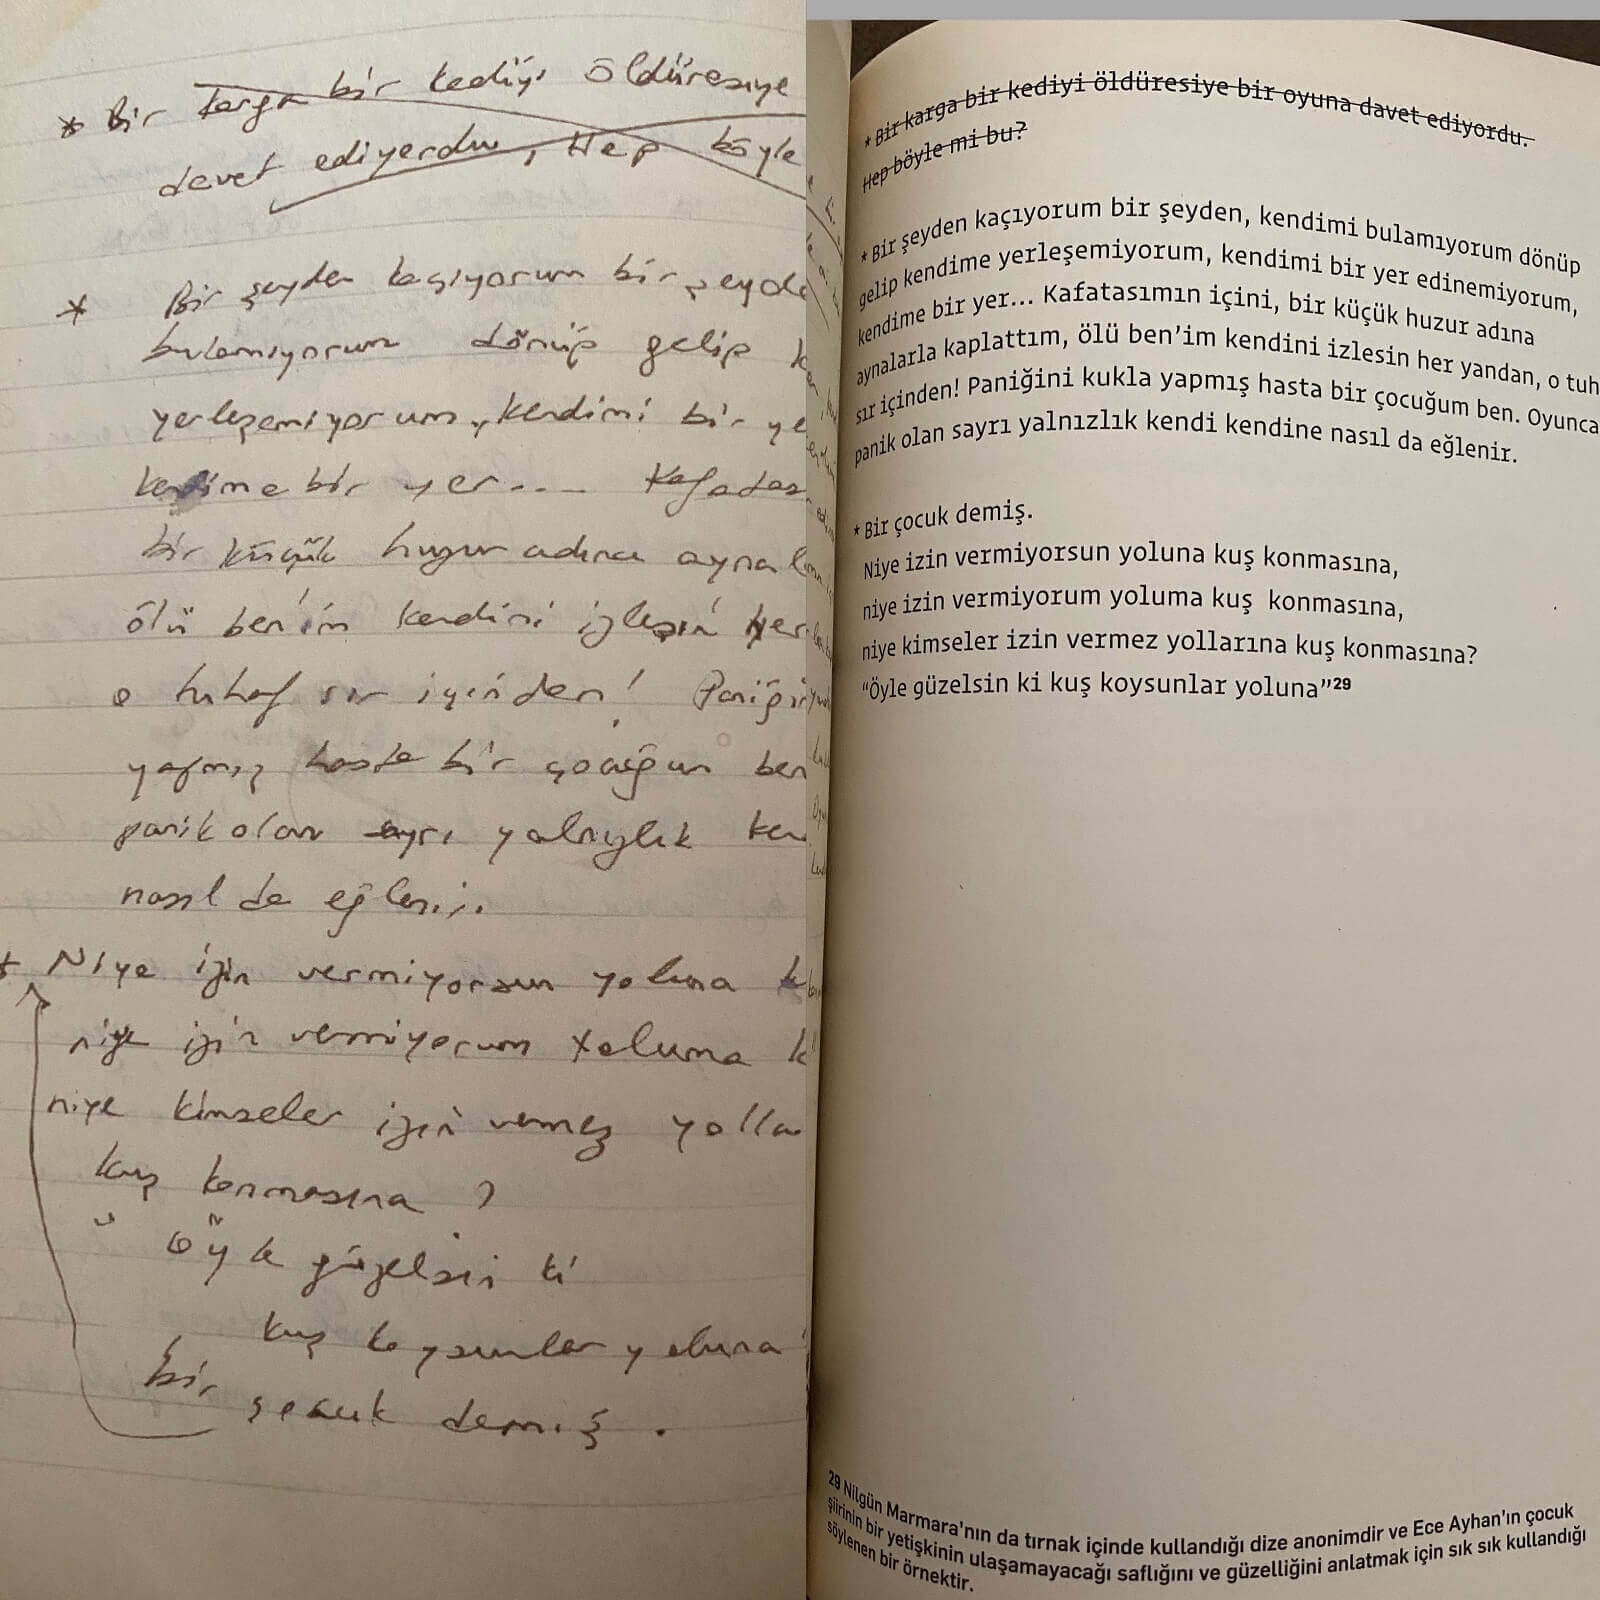 * Bir karga bir kediyi öldüresiye
davet ediyordu, Hep böyle
* Bir şeyden kaçıyorum bir şeyde
bulamıyorum dönüp gelip
yerleşemiyorum, kendimi bir ye
kendime bir yer.... Kafatas
bir küçük huzur adına aynal
ölü ben'im kendini izlesin her
o tuhaf sır içinden! Paniğin
yapmış hasta bir çocuğum ben
panik olan sayrı yalnızlık ken
nasıl da eğlenir.
* Niye izin vermiyorsun yoluna k
niye izin vermiyorum yoluma k
niye kimseler izin vermez yolla
kuş konmasına ?
" Öyle güzelsin ki
kuş koysunlar yoluna"
bir çocuk demiş.
* Bir karga bir kediyi öldüresiye bir oyuna davet ediyordu.
Hep böyle mi bu?
* Bir şeyden kaçıyorum bir şeyden, kendimi bulamıyorum dönüp
gelip kendime yerleşemiyorum, kendimi bir yer edinemiyorum,
kendime bir yer... Kafatasımın içini, bir küçük huzur adına
aynalarla kaplattım, ölü ben'im kendini izlesin her yandan, o tuh
sır içinden! Paniğini kukla yapmış hasta bir çocuğum ben. Oyunca
panik olan sayrı yalnızlık kendi kendine nasıl da eğlenir.
* Bir çocuk demiş.
Niye izin vermiyorsun yoluna kuş konmasına,
niye izin vermiyorum yoluma kuş konmasına,
niye kimseler izin vermez yollarına kuş konmasına?
“Öyle güzelsin ki kuş koysunlar yoluna”29
29 Nilgün Marmara'nın da tırnak içinde kullandığı dize anonimdir ve Ece Ayhan'ın çocuk
şiirinin bir yetişkinin ulaşamayacağı saflığını ve güzelliğini anlatmak için sık sık kullandığı
söylenen bir örnektir.